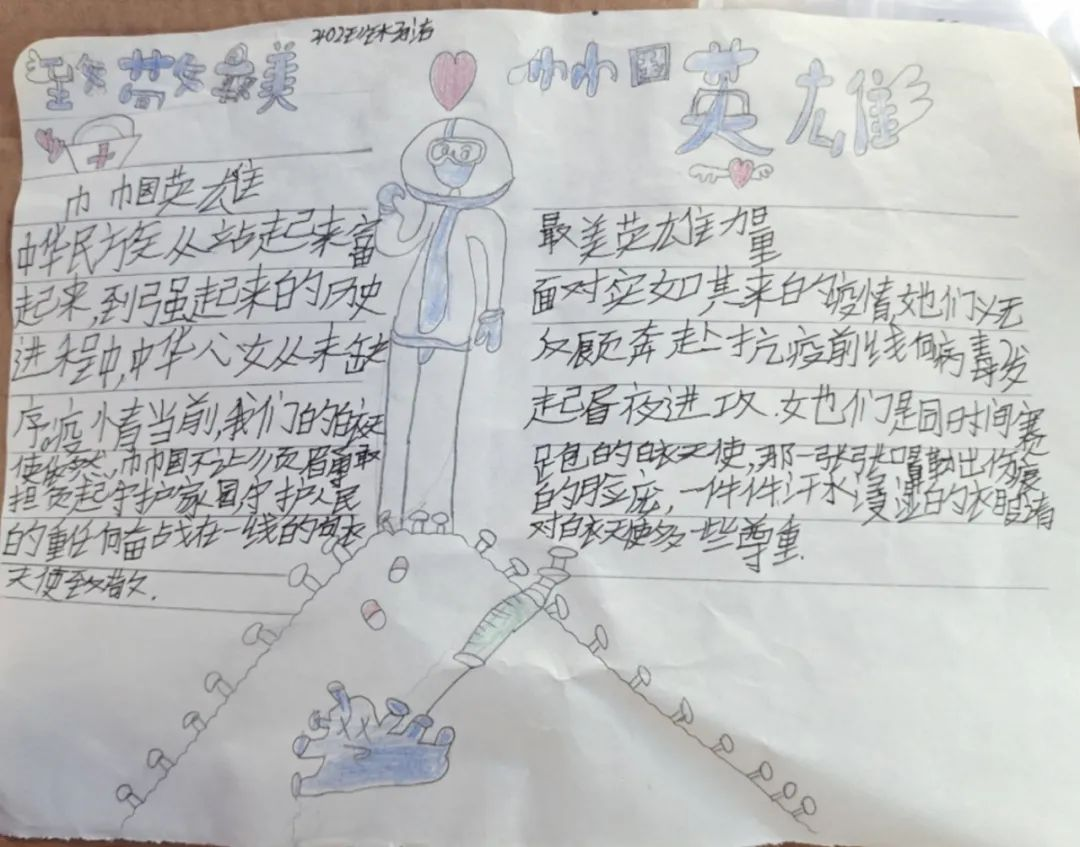 致敬最美
巾帼英雄
巾帼英雄
中华民族从站起来富
起来,到强起来的历史
进程中,中华儿女从未缺
席。疫情当前,我们的白衣天
使依然巾帼不让须眉勇敢
担负起守护家国守护人民
的重任向奋战在一线的白衣
天使致敬.
最美英雄力量
面对突如其来的疫情,她们义无
反顾奔赴抗疫前线向病毒发
起昼夜进攻.她们是同时间赛
跑的白衣天使,那一张张口罩勒出伤痕
的脸庞,一件件汗水浸湿的衣服请
对白衣天使多一些尊重.